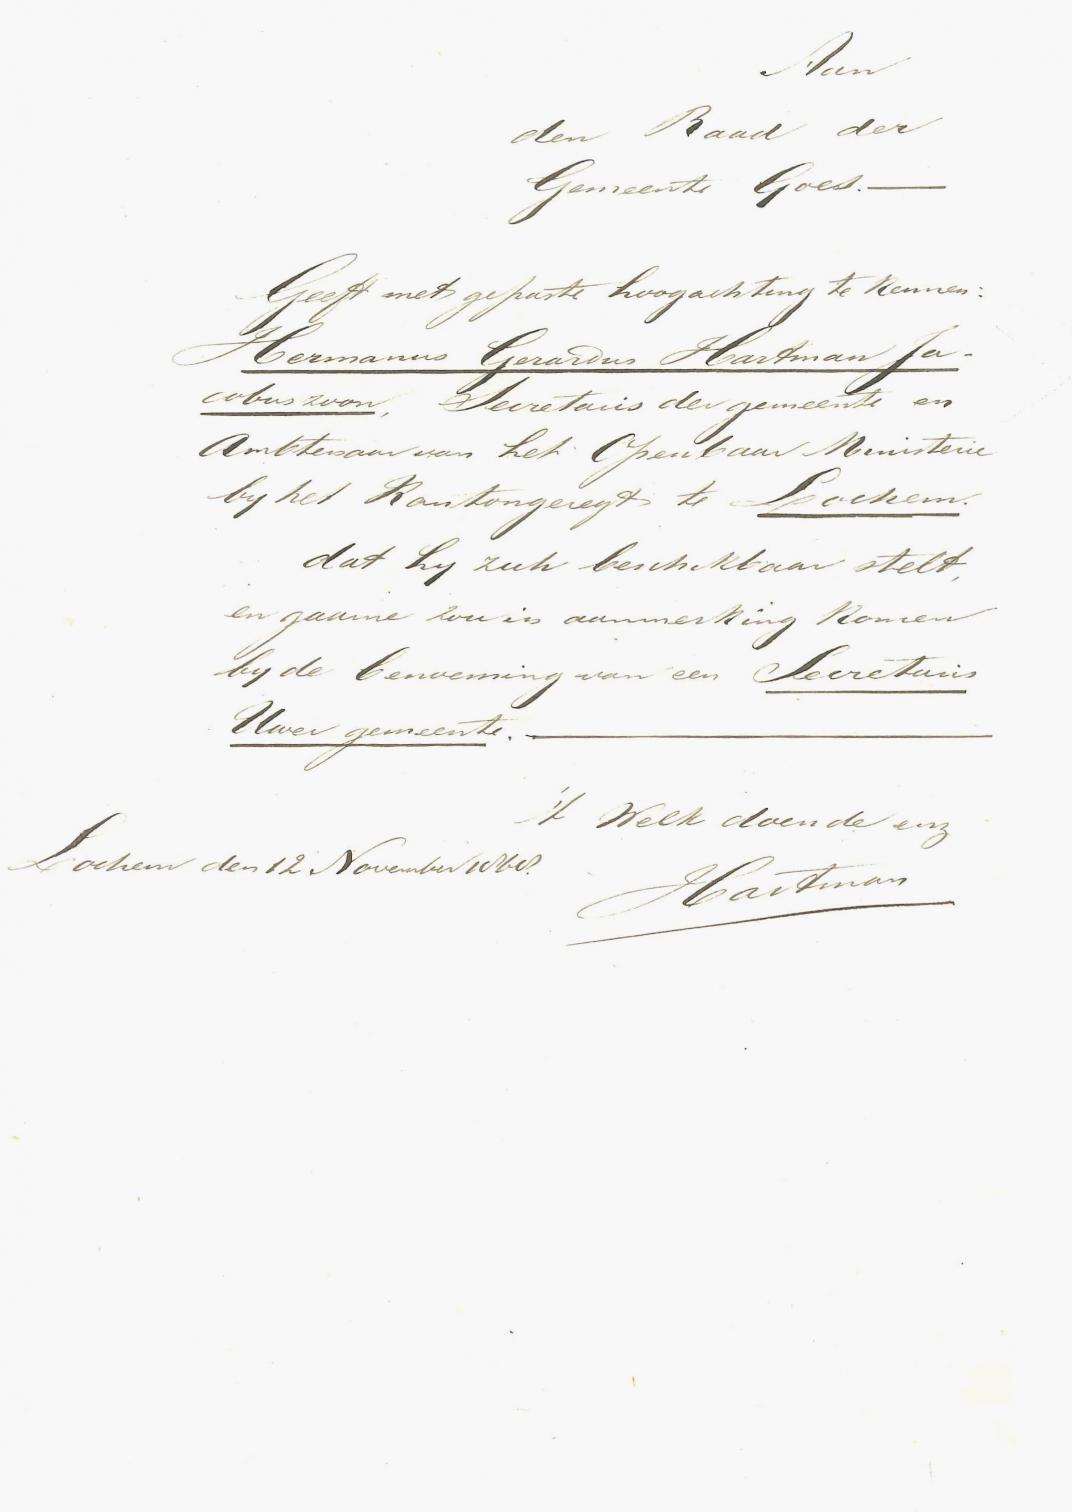 Aan
den Raad der
Gemeente Goes.—
Geeft met gepaste hoogachting te kennen:
Hermanus Gerardus Hartman Ja-
cobuszoon, Secretaris der gemeente en
Ambtenaar van het Openbaar Ministerie
by het Kantongeregt te Lochem.
dat hy zich beschikbaar stelt,
en gaarne zou in aanmerking komen
by de benoeming van een Secretaris
Uwer gemeente.—
't Welk doende enz
Lochem den 12 November
Hartman